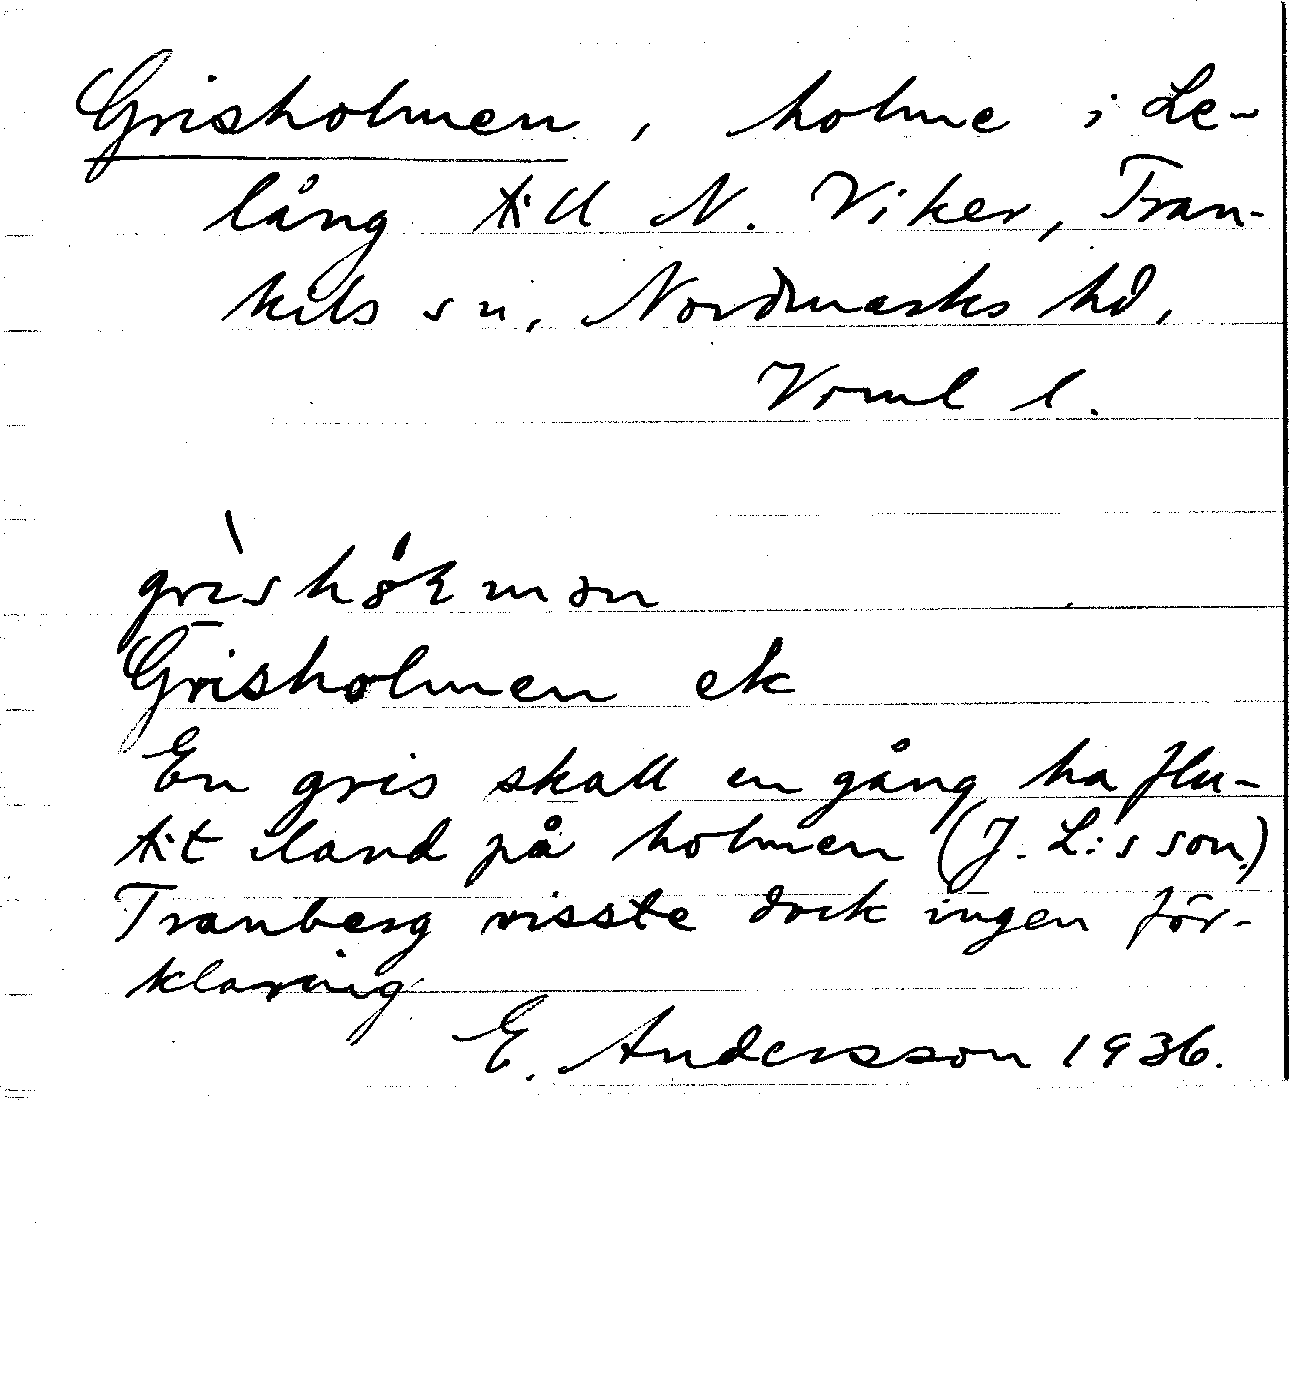 Grisholmen, holme i Le-
lång till N. Viker, Tran-
kils sn, Nordmarks hd,
Vrml l.
Grisholmen ek
En gris skall en gång ha flu-
tit iland på holmen (J. L:sson.)
Tranberg visste dock ingen för-
klaring
E. Andersson 1936.